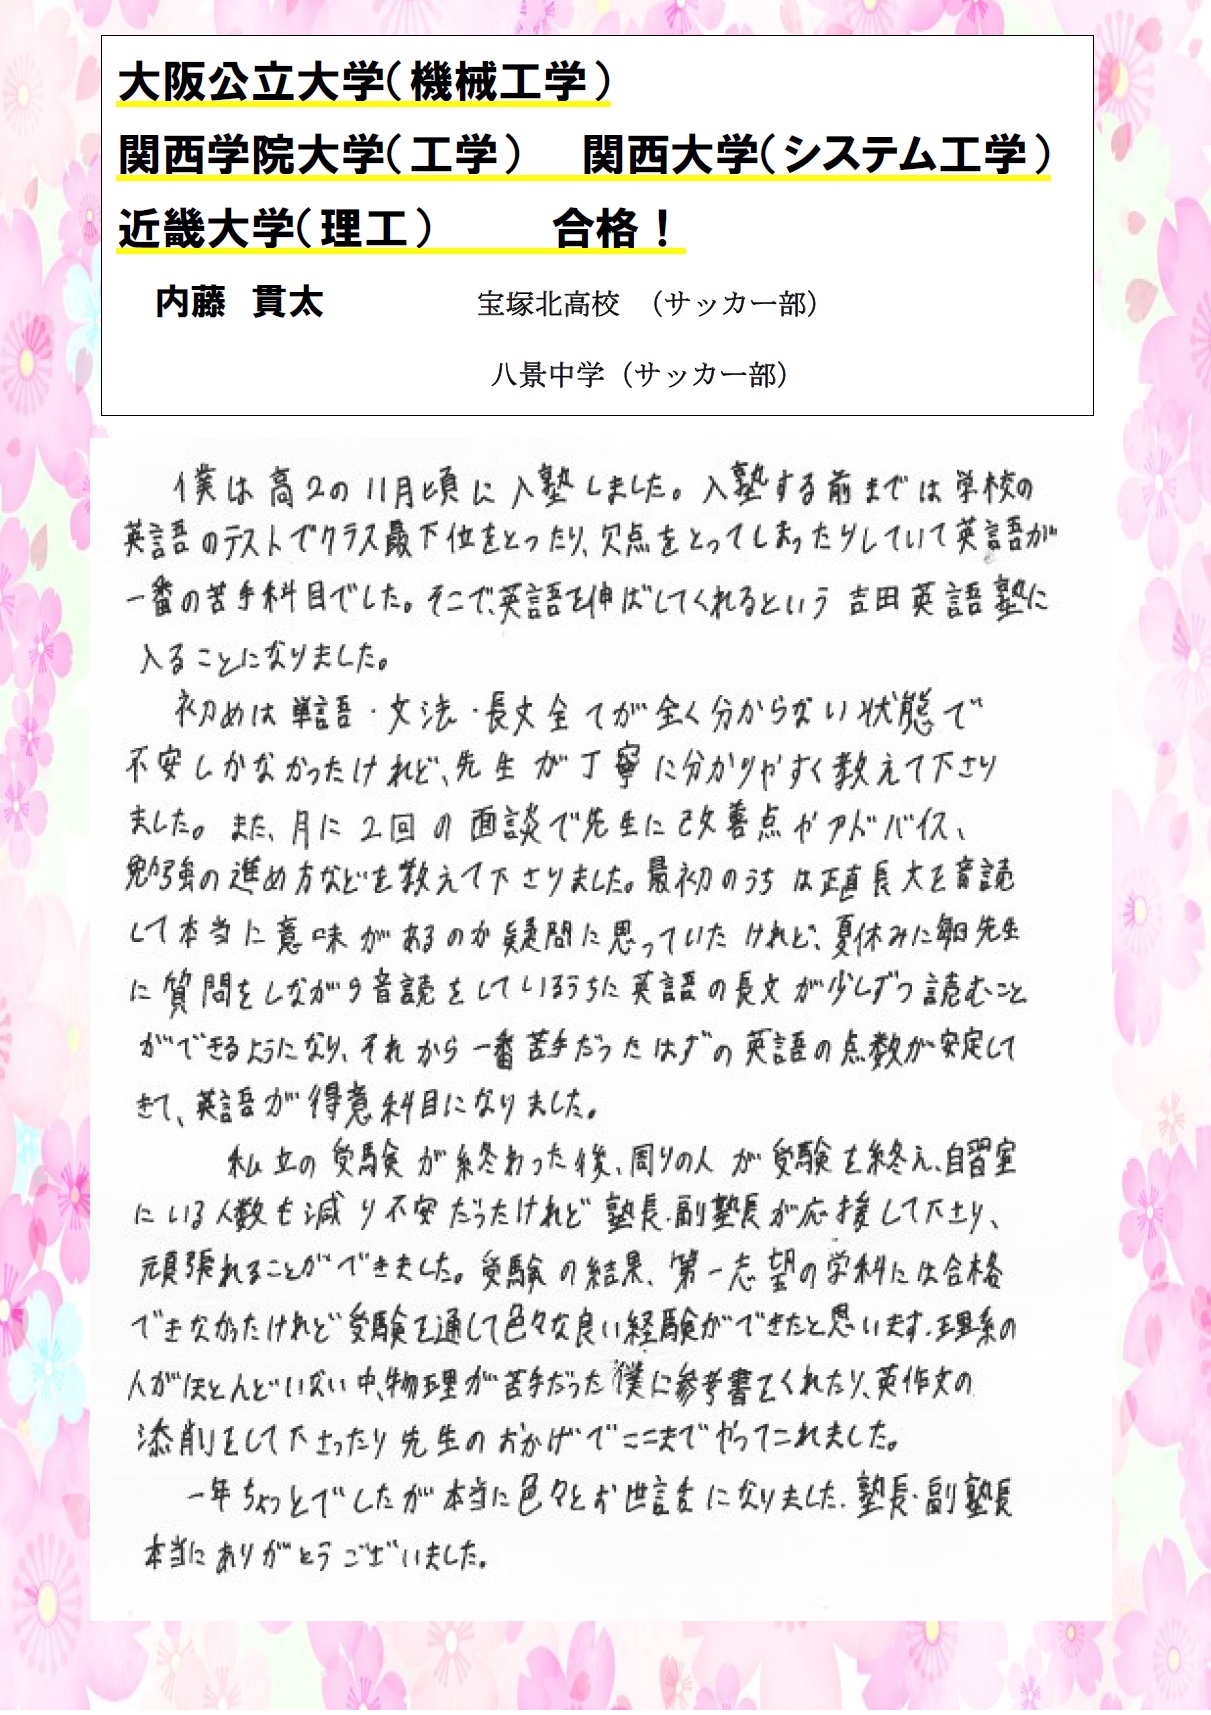 大阪公立大学（機械工学）
関西学院大学（工学）　関西大学（システム工学）
近畿大学（理工）　　合格！
内藤　貫太　　宝塚北高校　（サッカー部）
八景中学（サッカー部）
僕は高２の11月頃に入塾しました。入塾する前までは学校の
英語のテストでクラス最下位をとったり、欠点をとってしまったりしていて英語が
一番の苦手科目でした。そこで、英語を伸ばしてくれるという吉田英語塾に
入ることになりました。
初めは単語・文法・長文全てが全く分からない状態で
不安しかなかったけれど、先生が丁寧に分かりやすく教えて下さり
ました。また、月に２回の面談で先生に改善点やアドバイス、
勉強の進め方などを教えて下さりました。最初のうちは正直長文を音読
して本当に意味があるのか疑問に思っていたけれど、夏休みに毎日先生
に質問をしながら音読をしているうちに英語の長文が少しずつ読むこと
ができるようになり、それから一番苦手だったはずの英語の点数が安定して
きて、英語が得意科目になりました。
私立の受験が終わった後、周りの人が受験を終え、自習室
にいる人数も減り不安だったけれど塾長・副塾長が応援して下さり、
頑張れることができました。受験の結果、第一志望の学科には合格
できなかったけれど受験を通して色々な良い経験ができたと思います。理系の
人がほとんどいない中、物理が苦手だった僕に参考書をくれたり、英作文の
添削をして下さったり先生のおかげでここまでやってこれました。
一年ちょっとでしたが本当に色々とお世話になりました。塾長・副塾長
本当にありがとうございました。